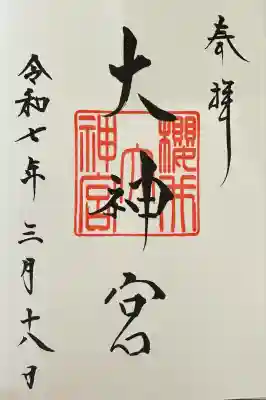 奉拝
大神宮
令和七年三月十八日
神宮